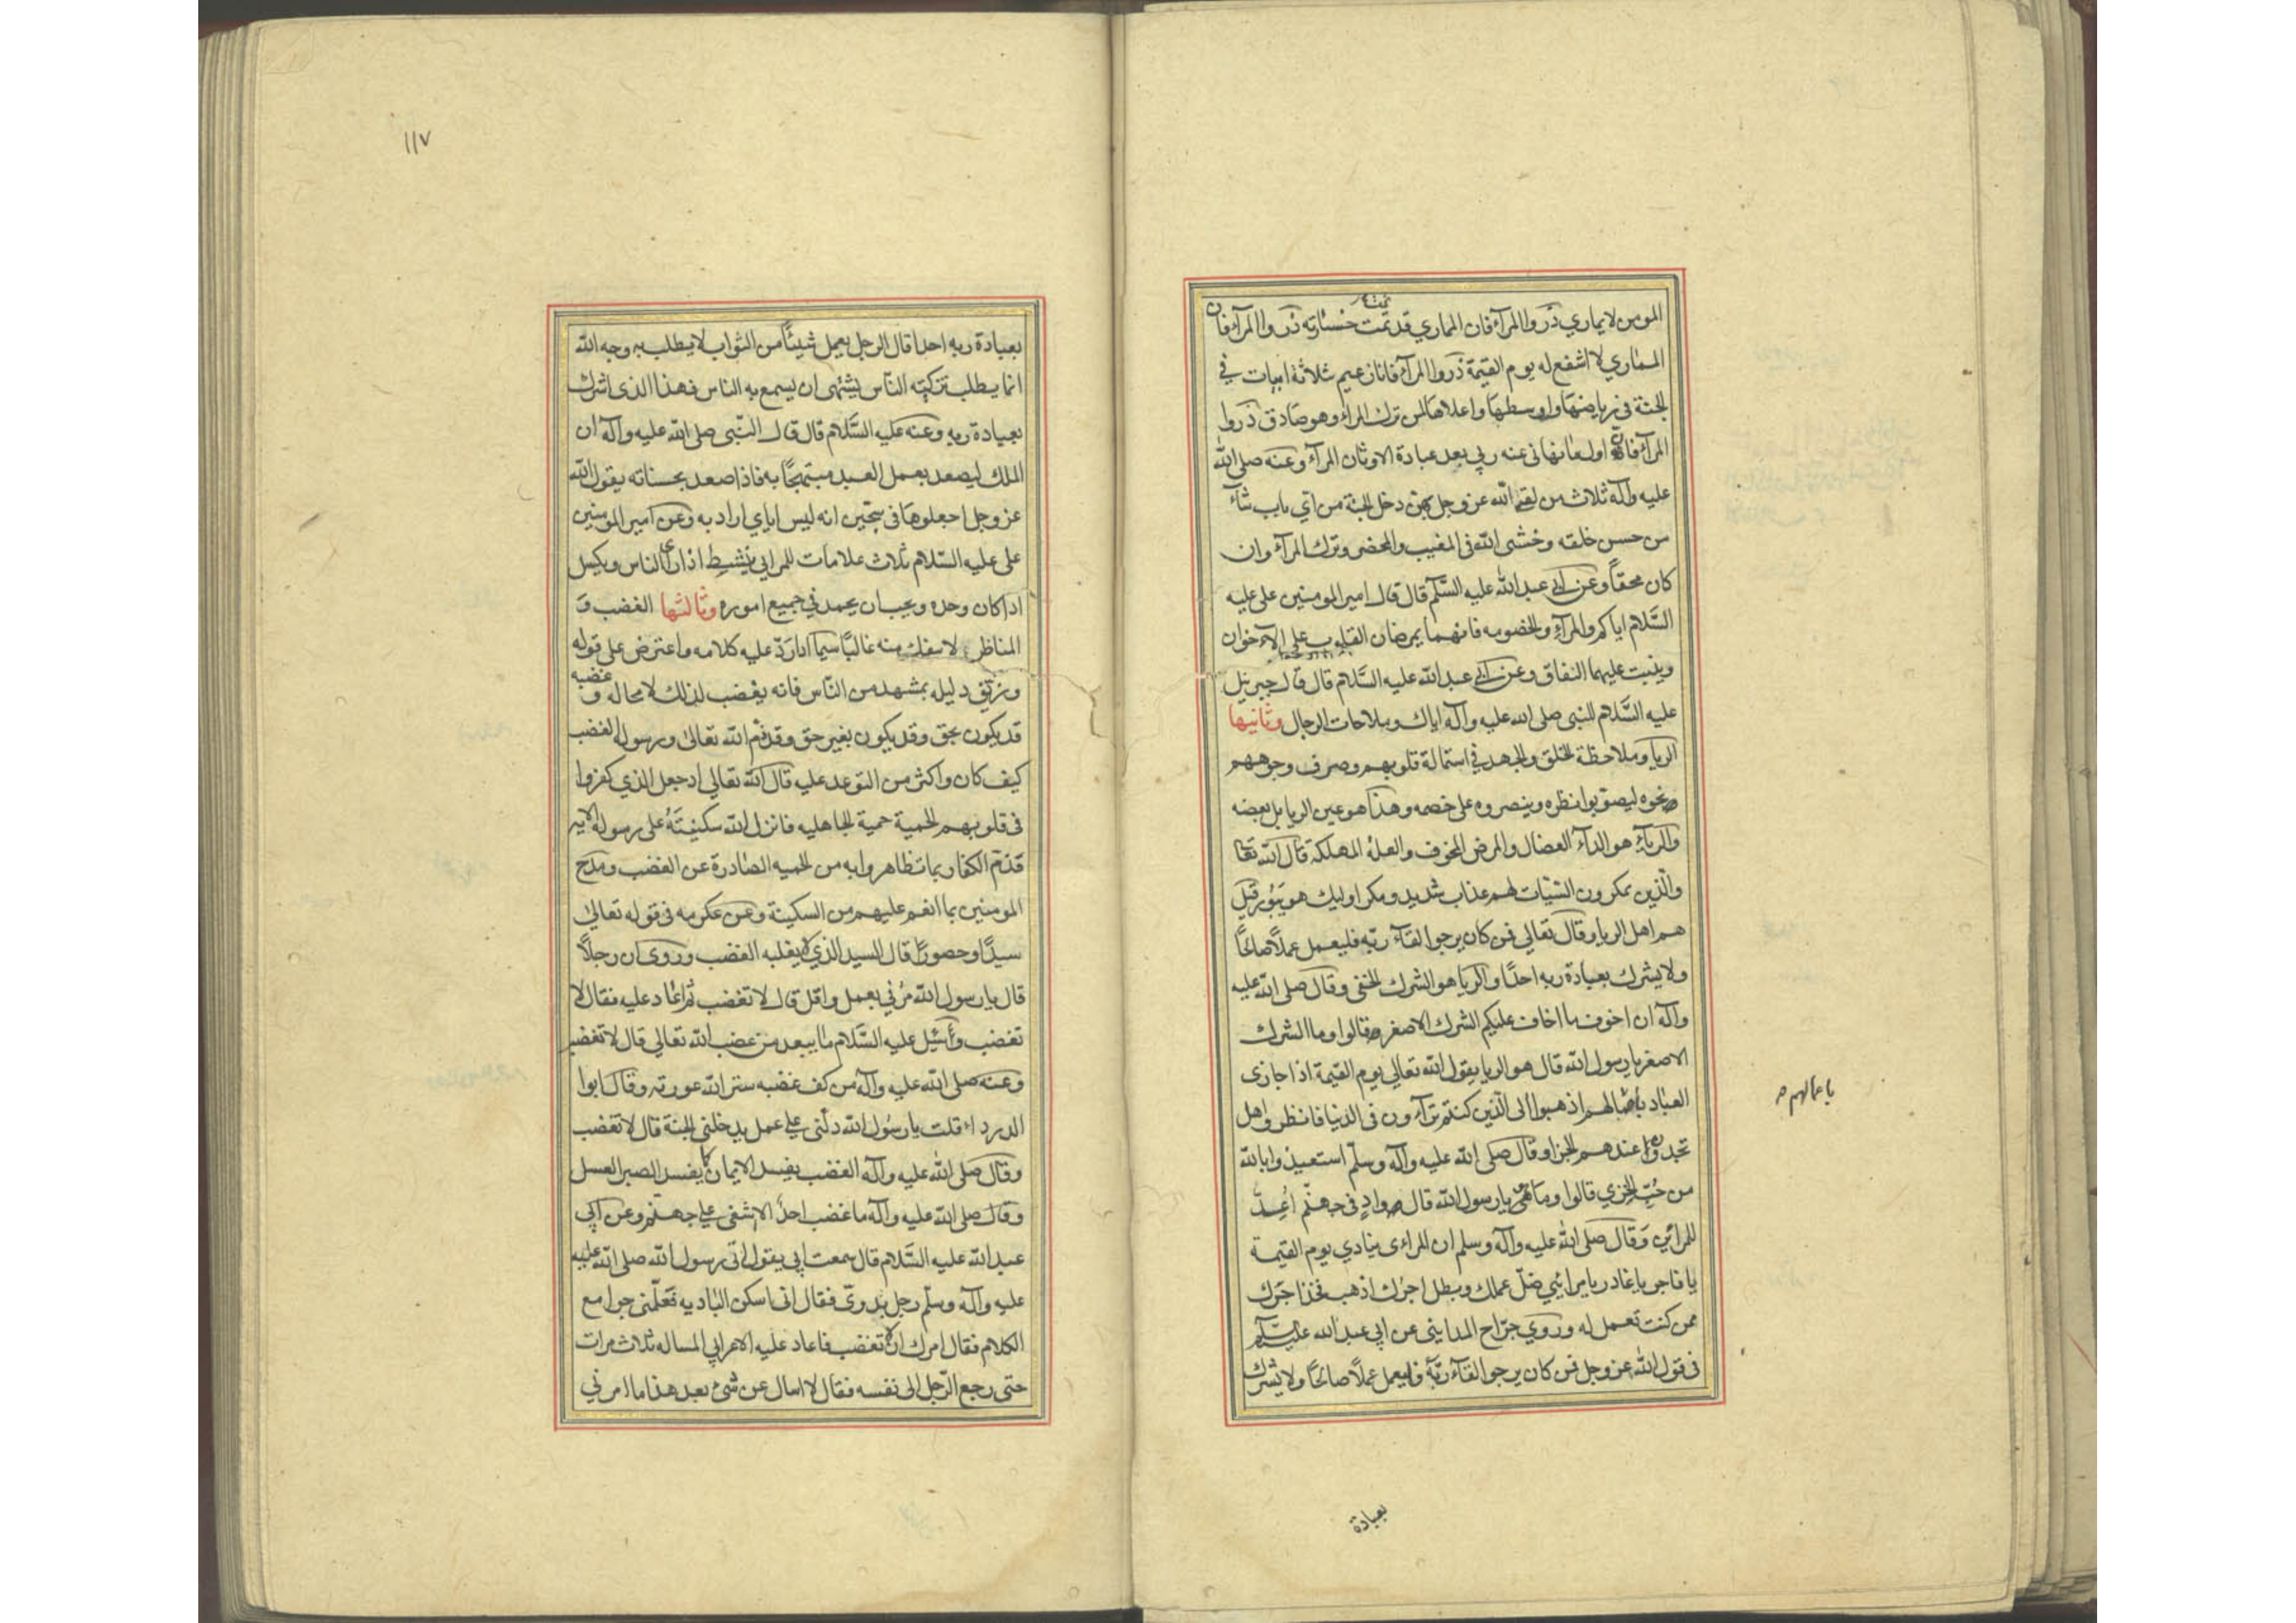 المومن لا يماري ذروا المرآء فان المماري قد تمت خسارته ذروا المرآء فان
المماري لا اشفع له يوم القيمة ذروا المرآء فانا زعيم ثلاثة ابيات في
الجنة في رياضها واوسطها واعلاها لمن ترك المراء وهو صادق ذروا
المرآء فان اول ما نهاني عنه ربي بعد عبادة الاوثان المرآء وعنه صلى الله
عليه وآله ثلاث من لقى الله عز وجل بهن دخل الجنة من اي باب شآء
من حسن خلقه وخشى الله فى المغيب والمحضر وترك المرآء وان
كان محقاً وعن ابى عبد الله عليه السَّلم قال قال امير المومنين على عليه
السَّلام اياكم والمرآء والخصومه فانهما يمرضان القلوب على الآخوان
وينبت عليهما النفاق وعن ابى عبد الله عليه السَّلام قال قال جبرئيل
عليه السَّلام للنبى صلى الله عليه وآله اياك وملاحات الرجال وثانيها
الريا وملاحظة الخلق والجهد في استمالة قلوبهم وصرف وجوههم
نحوه ليصوبوا نظره وينصروه على خصمه وهذا هو عين الريا بل بعضه
والريآء هو الدآء العضال والمرض المخوف والعلة المهلكة قال الله تعا
والذين يمكرون السّيّات لهم عذاب شديد ومكر اوليك هو يبور قيل
هم اهل الريا وقال تعالى فمن كان يرجوا لقآء ربّه فليعمل عملاً صالحًا
ولا يشرك بعبادة ربه احدًا والريا هو الشرك الخفى وقال صلى الله عليه
وآله ان اخوف ما اخاف عليكم الشرك الاصغر قالوا وما الشرك
الاصغر يا رسول الله قال هو الريا يقول الله تعالى يوم القيمة اذا جازى
العباد باعمالهم اذهبوا الى الذين كنتم ترآءون فى الدنيا فانظروا هل
باعمالهم
تجدوا عندهم الجزا وقال صلى الله عليه وآله وسلّم استعيذوا بالله
من جُبّ الخزي قالوا وما هو يا رسول الله قال واد في جهنّم اُعِدَّ
للمرائين وقال صلى الله عليه وآله وسلم ان المراءى ينادي يوم القيمة
يا فاجر يا غادر يا مرائي ضلّ عملك وبطل اجرك اذهب فخذ اجرك
ممن كنت تعمل له وروي جرّاح المدايني عن ابي عبد الله عليه السَّلم
فى قول الله عز وجل فمن كان يرجوا لقآء ربّه فليعمل عملاً صالحًا ولا يشرك
بعبادة
١١٧
بعبادة ربه احدا قال الرجل يعمل شيئاً من الثواب لا يطلب به وجه الله
انما يطلب تزكية النّاس يشتهى ان يسمع به الناس فهذا الذى اشرك
بعبادة ربه وعنه عليه السَّلام قال قال النّبى صلى الله عليه وآله ان
الملك ليصعد بعمل العبد مبتهجًا به فاذا صعد بحسناته يقول الله
عز وجل اجعلوها فى سجّين انه ليس اياي اراد به وعن امير المومنين
على عليه السّلام ثلاث علامات للمرايي ينشط اذا راى الناس ويكسل
اذا كان وحده ويحب ان يحمد في جميع اموره وثالثها الغضب و
المناظر لا ينفك منه غالبًا سيما اذا ردّ عليه كلامه واعترض على قوله
وزيّف دليله بمشهد من النّاس فانه يغضب لذلك لا محاله وغضبه
قد يكون بحق وقد يكون بغير حق وقد ذم الله تعالى ورسوله الغضب
كيف كان واكثر من التوعد عليه قال الله تعالى اذ جعل الذي كفروا
فى قلوبهم الحمية حمية الجاهليه فانزل الله سكينتَهُ على رسوله الاية
فذم الكفار بما تظاهروا به من الحميه الصادرة عن الغضب ومدح
المومنين بما انعم عليهم من السكينة وعن عكرمه فى قوله تعالى
سيدًا وحصورًا قال السيد الذي لا يغلبه الغضب وروى ان رجلاً
قال يا رسول الله مُرني بعمل واقل قال لا تغضب ثم اعاد عليه فقال لا
تغضب وسُئِل عليه السَّلام ما يبعد من غضب الله تعالى قال لا تغضب
وعنه صلى الله عليه وآله من كف غضبه ستر الله عورته وقال ابوا
الدرداء قلت يا رسُول الله دلّنى على عمل يدخلنى الجنة قال لا تغضب
وقال صلى الله عليه وآله الغضب يفسد الايمان كما يفسد الصبر العسل
وقال صلى الله عليه وآله ما غضب احدٌ الا اشفى على جهنّم وعن ابي
عبد الله عليه السَّلام قال سمعت ابي يقول اتى رسول الله صلى الله عليه
عليه وآله وسلّم رجل بدويّ فقال انى اسكن البادیه فعلّمنى جوامع
الكلام فقال امرك ان لا تغضب فاعاد عليه الاعرابي المساله ثلاث مرات
حتى رجع الرّجل الى نفسه فقال لا اسال عن شيء بعد هذا ما امرني